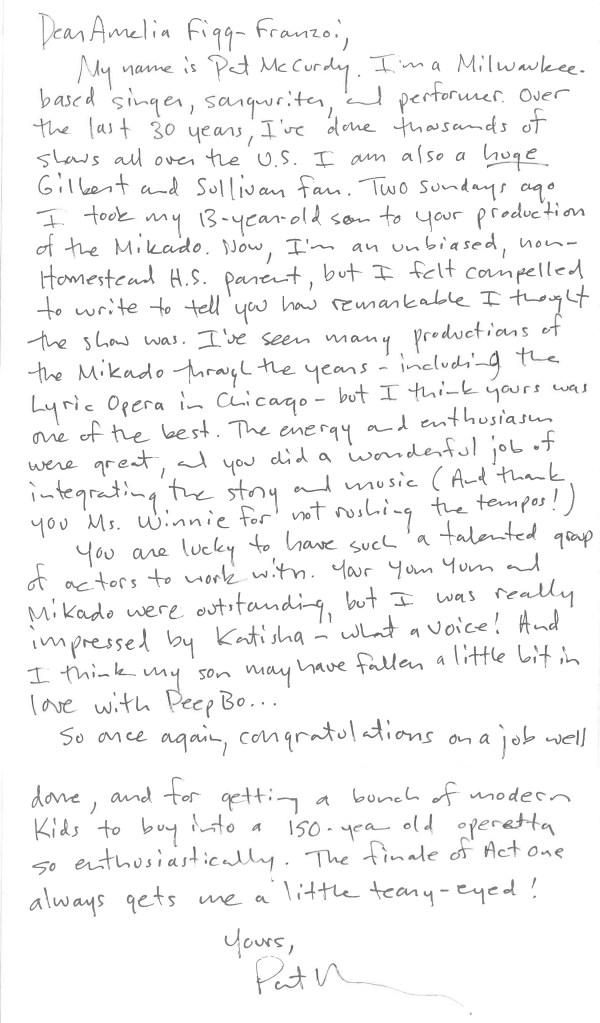 Dear Amelia Figg-Franzoi,
My name is Pat McCurdy. I'm a Milwaukee-
based singer, songwriter, and performer. Over
the last 30 years, I've done thousands of
shows all over the U.S. I am also a huge
Gilbert and Sullivan fan. Two Sundays ago
I took my 13-year-old son to your production
of the Mikado. Now, I'm an unbiased, non-
Homestead H.S. parent, but I felt compelled
to write to tell you how remarkable I thought
the show was. I've seen many productions of
the Mikado through the years - including the
Lyric Opera in Chicago - but I think yours was
one of the best. The energy and enthusiasm
were great, and you did a wonderful job of
integrating the story and music (And thank
you Ms. Winnie for not rushing the tempos!)
You are lucky to have such a talented group
of actors to work with. Your Yum Yum and
Mikado were outstanding, but I was really
impressed by Katisha - what a voice! And
I think my son may have fallen a little bit in
love with Peep Bo...
So once again, congratulations on a job well
done, and for getting a bunch of modern
kids to buy into a 150-year old operetta
so enthusiastically. The finale of Act One
always gets me a little teary-eyed!
Yours,
Pat M